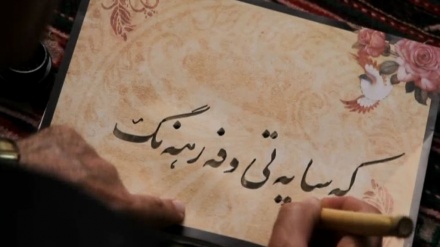 که سایه‌تی و فه‌رهه‌نگ